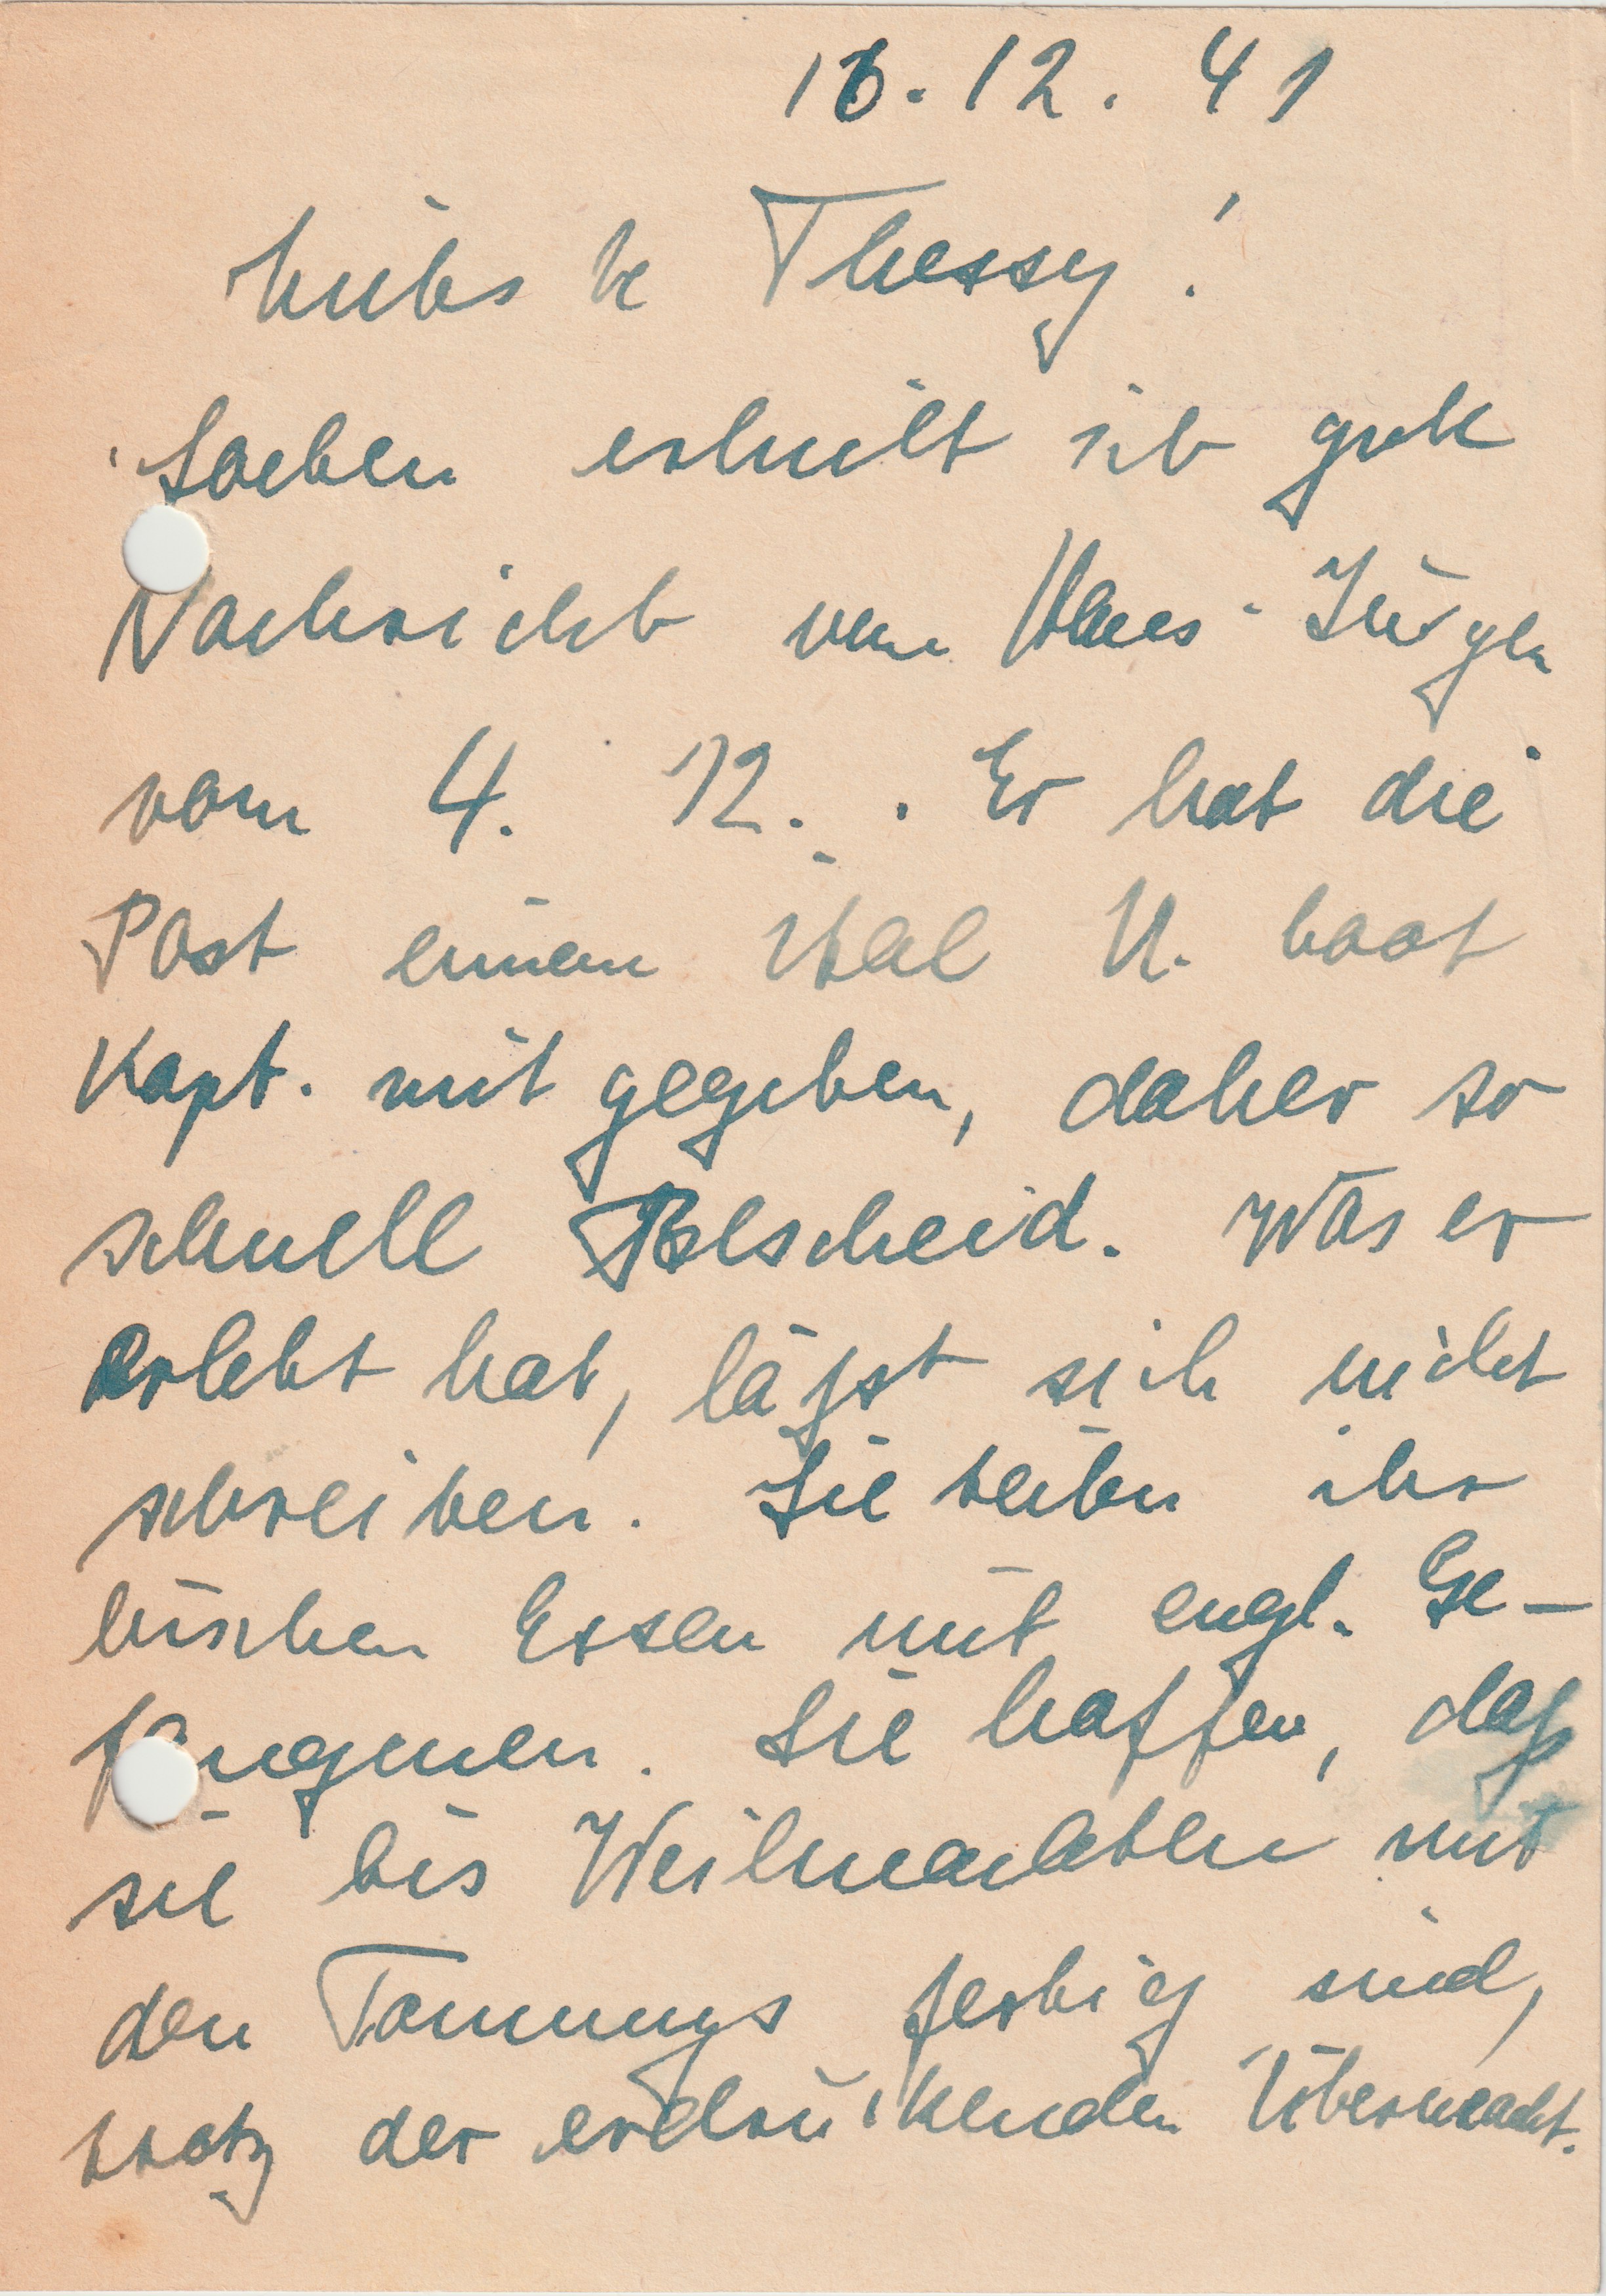 16.12.41
Liebste Thessy!
Soeben erhielt ich gute
Nachricht von Hans-Jürgen
vom 4. 12. . Er hat die
Post einem ital U. boot
Kapt. mit gegeben, daher so
schnell Bescheid. Was er
erlebt hat, läßst sich nicht
schreiben. Sie teilen ihr
bischen Essen mit engl. Ge-
fangnen. Sie hoffen, daß
sie bis Weihnachten mit
den Tommys fertig sind,
trotz der erdrückenden Übermacht.